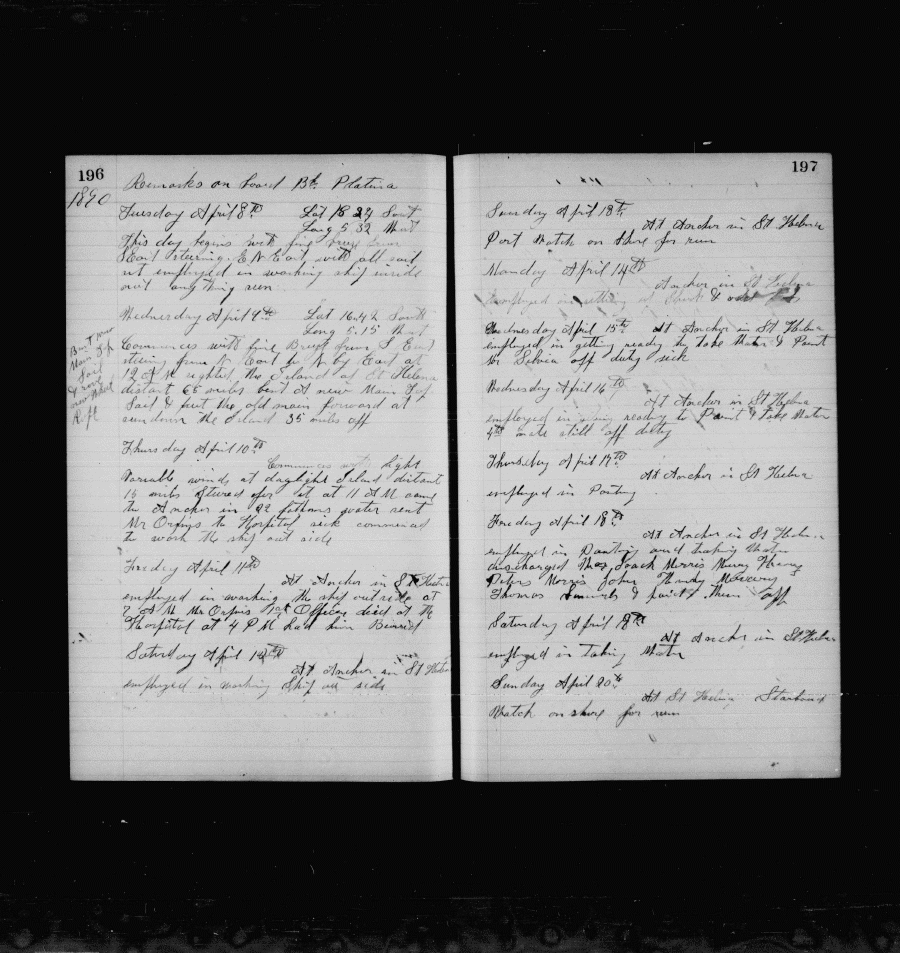 196
1890
Remarks on board Bk Platina
Tuesday April 8th Lat 18 24 South
Long 5 32 West
This day begins with fine breeze from
S East steering E N East with all sail
set employed in working ship inside
not anything seen
Wednesday April 9th Lat 16 42 South
Long 5.15 West
Bent new
Main Top
Sail
Commences with fine Breeze from S East
stering from N East to N by East at
12 A M sighted the Island of St Helena
distant 65 miles bent A new Main Top
Sail & put the old main forward at
sundown the Island 35 miles off
Thursday April 10th
Commences with light
Variable winds at daylight Island distant
15 miles Stered for it at 11 A M came
to Anchor in 22 fathoms water sent
Mr Orpins to Hospital sick commenced
to work the ship out side
Friday April 11th
At Anchor in St Helena
employed in working the ship outside at
2 A M Mr Orpins 1st Officer died at the
Hospital at 4 P M had him Buried
Saturday April 12th
At Anchor in St Helena
employed in working Ship out side
197
Sunday April 13th
At Anchor in St Helena
Port Watch on Shore for run
Monday April 14th
Anchor in St Helena
employed in
Wednesday April 15th At Anchor in St Helena
employed in getting ready to take Water & Paint
Mr Silvia off duty sick
Wednesday April 16th
At Anchor in St Helena
employed in ready to Paint & take Water
4th mate still off duty
Thursday April 17th
At Anchor in St Helena
employed in Painting
Friday April 18th
At Anchor in St Helena
employed in Painting and taking Water
discharged Morris
Peter Morris John
Thomas & paid them off
Saturday April 19th
At Anchor in St Helena
employed in Taking Water
Sunday April 20th
At St Helena Starboard
Watch on shore for run